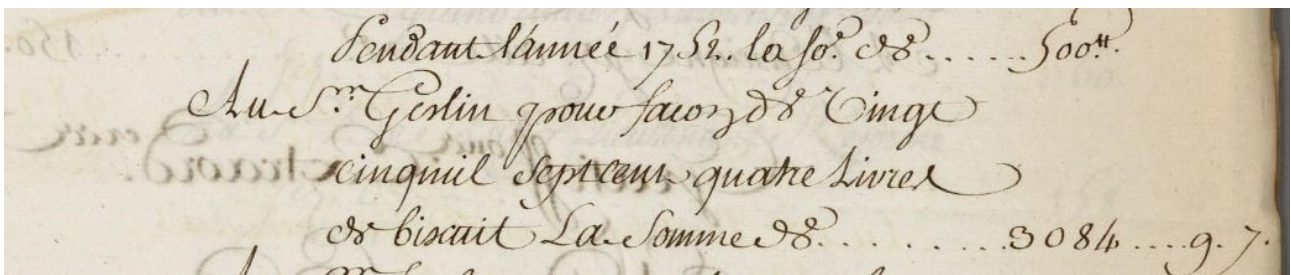 Pendant l'année 1752. la so.e de ..... 500tt.
Au S.r Gerlin pour facon de Vingt
cinqmil sept cent quatre Livres
de biscuit La Somme de. . . . . . . . 3084 .... 9. 7.